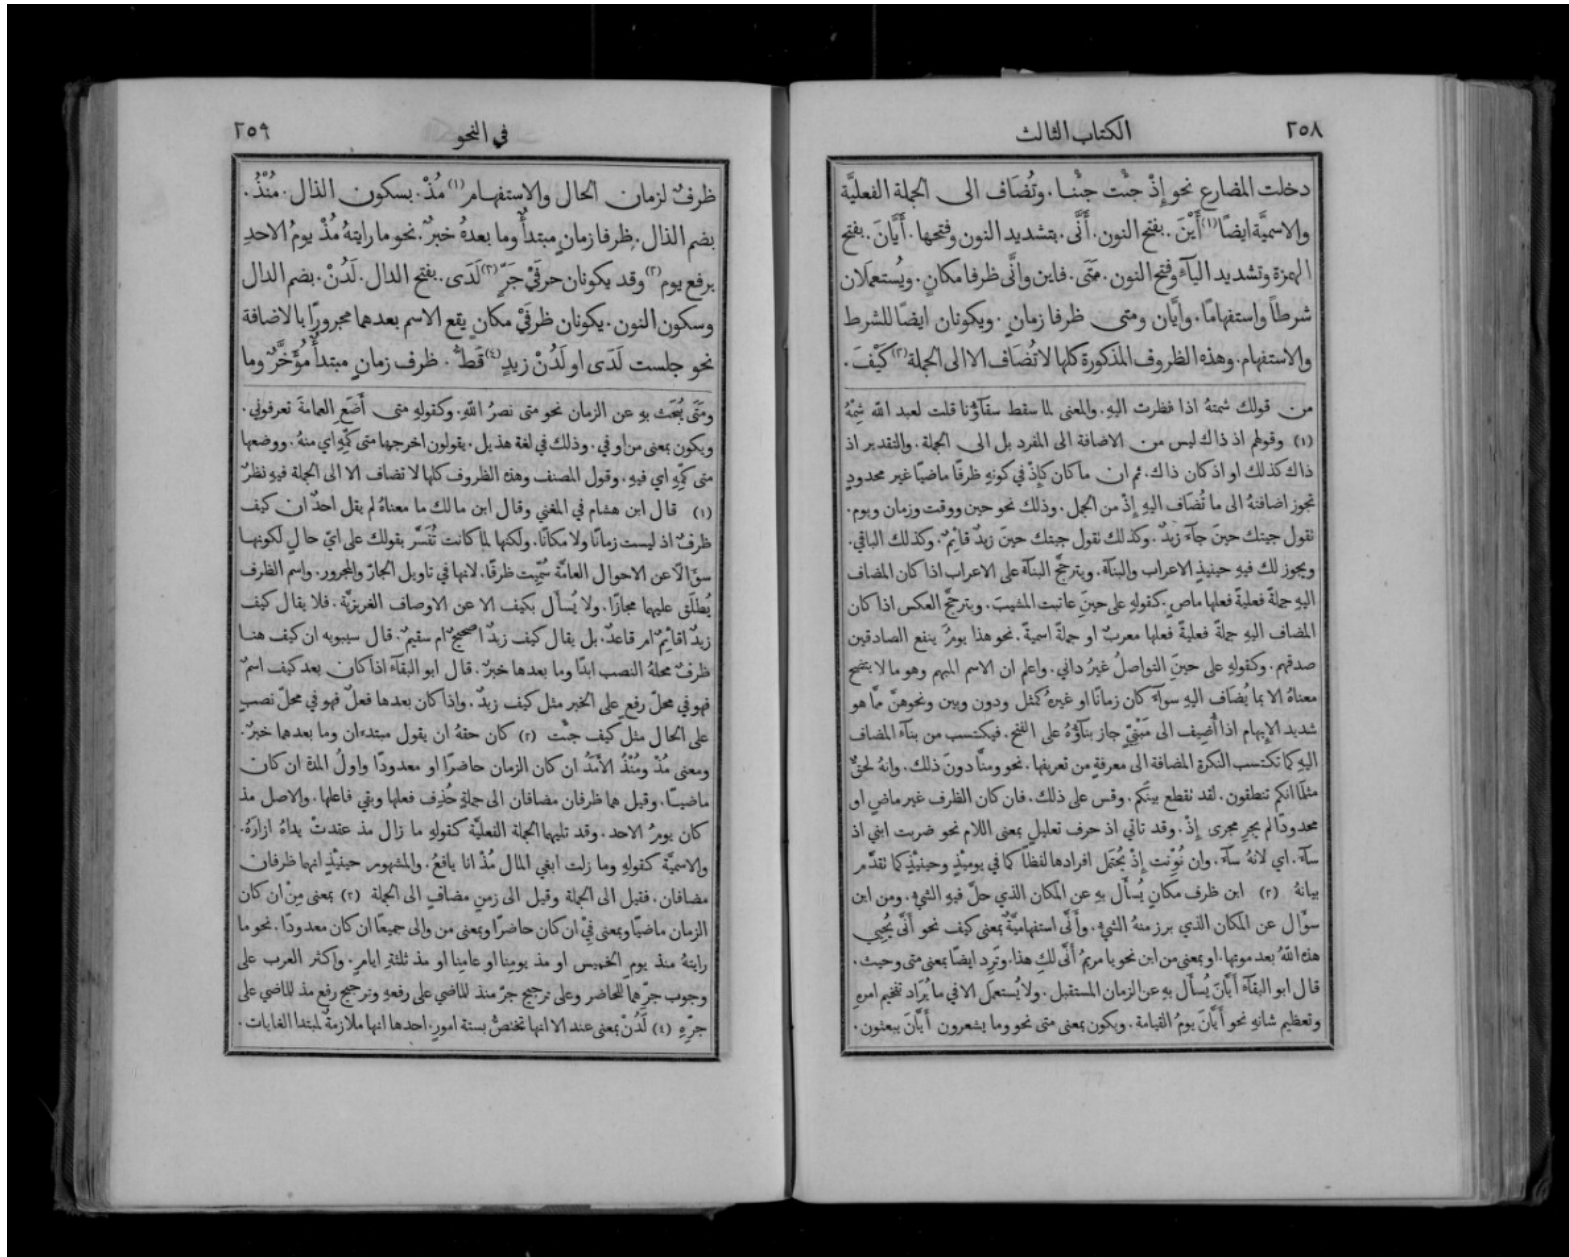 ٢٥٨
الكتاب الثالث
دخلت المضارع نحو إِذْ جئْت جئْنا. وتُضَاف الى الجملة الفعليَّة
والاسميَّة ايضًا(١) أَيْنَ. بفتح النون. أَنَّى. بتشديد النون وفتحها. أَيَّانَ. بفتح
الهمزة وتشديد اليآء وفتح النون. مَتَى. فاين وانَّى ظرفا مكانٍ. ويُستعمَلان
شرطًا واستفهامًا. وايَّان ومتى ظرفا زمانٍ. ويكونان ايضًا للشرط
والاستفهام. وهذه الظروف المذكورة كلها لا تُضَاف الا الى الجملة(٢) كَيْفَ.
من قولك شمتهُ اذا نظرت اليهِ. والمعنى لما سقط سقآؤنا قلت لعبد الله شِمْهُ
(١) وقولهم اذ ذاك ليس من الاضافة الى المفرد بل الى الجملة. والتقدير اذ
ذاك كذلك او اذ كان ذاك. ثم ان ما كان كإِذْ في كونهِ ظرفًا ماضيًا غير محدودٍ
تجوز اضافتهُ الى ما تُضَاف اليهِ إِذْ من الجمل. وذلك نحو حين ووقت وزمان ويوم.
تقول جيتك حينَ جآءَ زيدٌ. وكذلك تقول جيتك حينَ زيدٌ قايمٌ. وكذلك الباقي.
ويجوز لك فيهِ حينيذٍ الاعراب والبنآء. ويترجَّح البنآء على الاعراب اذا كان المضاف
اليهِ جملةً فعليةً فعلها ماضٍ. كقولهِ على حينَ عاتبت المشيبَ. ويترجَّح العكس اذا كان
المضاف اليهِ جملةً فعليةً فعلها معربٌ او جملةً اسميةً. نحو هذا يومُ ينفع الصادقين
صدقهم. وكقولهِ على حينِ التواصلُ غيرُ داني. واعلم ان الاسم المبهم وهو ما لا يتضح
معناهُ الا بما يُضَاف اليهِ سوآءٌ كان زمانًا او غيرهُ كمثل ودون وبين ونحوهنَّ مما هو
شديد الإبهام اذا أُضِيف الى مَبْنِيٍّ جاز بنآؤُهُ على الفتح. فيكتسب من بنآء المضاف
اليهِ كما تكتسب النكرة المضافة الى معرفةٍ من تعريفها. نحو ومنَّا دونَ ذلك. وانهُ لحقٌّ
مثلَما انكم تنطقون. لقد تقطع بينَكم. وقس على ذلك. فان كان الظرف غير ماضٍ او
محدودًا لم يجرِ مجرى إِذْ. وقد تاتي اذ حرف تعليلٍ بمعنى اللام نحو ضربت ابني اذ
سآءَ. اي لانهُ سآءَ. وان نُوِّنت إِذْ يُحتمَل افرادها لفظًا كما في يوميذٍ وحينيذٍ كما تقدَّم
بيانهُ (٢) اين ظرف مكانٍ يُسأَل بهِ عن المكان الذي حلَّ فيهِ الشيء. ومن اين
سوَّال عن المكان الذي برز منهُ الشيء. وأَنَّى استفهاميَّةٌ بمعنى كيف نحو أَنَّى يُحيِي
هذه اللهُ بعد موتها. او بمعنى من اين نحو يا مريمُ أَنَّى لكِ هذا. وتَرِد ايضًا بمعنى متى وحيث.
قال ابو البقآء أَيَّانَ يُسأَل بهِ عن الزمان المستقبل. ولا يُستعمَل الا في ما يُرَاد تفخيم امرهِ
وتعظيم شانهِ نحو أَيَّانَ يومُ القيامة. ويكون بمعنى متى نحو وما يشعرون أَيَّانَ يبعثون.
٢٥٩
في النحو
ظرفٌ لزمان الحال والاستفهام(١) مُذْ. بسكون الذال. مُنْذُ.
بضم الذال. ظرفا زمانٍ مبتدأٌ وما بعدهُ خبرٌ. نحو ما رايتهُ مُذْ يومُ الاحدِ
برفع يوم(٢) وقد يكونان حرفَيْ جَرٍّ(٣) لَدَى. بفتح الدال. لَدُنْ. بضم الدال
وسكون النون. يكونان ظرفَيْ مكانٍ يقع الاسم بعدهما مجرورًا بالاضافة
نحو جلست لَدَى او لَدُنْ زيدٍ(٤) قَطُّ. ظرف زمانٍ مبتدأٌ مُؤَخَّرٌ وما
ومتَى يُبحَث بهِ عن الزمان نحو متى نصرُ اللهِ. وكقولهِ متى أَضَعِ العمامةَ تعرفوني.
ويكون بمعنى من او في. وذلك في لغة هذيل. يقولون اخرجها متى كمِّهِ اي منهُ. ووضعها
متى كمِّهِ اي فيهِ. وقول المصنف وهذه الظروف كلها لا تضاف الا الى الجملة فيهِ نظرٌ
(١) قال ابن هشام في المغني وقال ابن مالك ما معناهُ لم يقل احدٌ ان كيف
ظرفٌ اذ ليست زمانًا ولا مكانًا. ولكنها لما كانت تُفَسَّر بقولك على ايّ حالٍ لكونها
سوَّالًا عن الاحوال العامَّة سُمِّيت ظرفًا. لانها في تاويل الجارّ والمجرور. واسم الظرف
يُطلَق عليهما مجازًا. ولا يُسأَل بكيف الا عن الاوصاف الغريزيَّة. فلا يقال كيف
زيدٌ اقايمٌ ام قاعدٌ. بل يقال كيف زيدٌ اصحيحٌ ام سقيمٌ. قال سيبويه ان كيف هنا
ظرفٌ محلهُ النصب ابدًا وما بعدها خبرٌ. قال ابو البقآء اذا كان بعد كيف اسمٌ
فهو في محلّ رفعٍ على الخبر مثل كيف زيدٌ. واذا كان بعدها فعلٌ فهو في محلّ نصبٍ
على الحال مثل كيف جئْت (٢) كان حقهُ ان يقول مبتدءان وما بعدهما خبرٌ.
ومعنى مُذْ ومُنْذُ الأَمَدُ ان كان الزمان حاضرًا او معدودًا واولُ المدة ان كان
ماضيًا. وقيل هما ظرفان مضافان الى جملةٍ حُذِف فعلها وبقي فاعلها. والاصل مذ
كان يومُ الاحد. وقد تليهما الجملة الفعليَّة كقولهِ ما زال مذ عقدتْ يداهُ ازارَهُ.
والاسميَّة كقولهِ وما زلت ابغي المال مُذْ انا يافعٌ. والمشهور حينيذٍ انهما ظرفان
مضافان. فقيل الى الجملة وقيل الى زمنٍ مضافٍ الى الجملة (٣) بمعنى مِنْ ان كان
الزمان ماضيًا وبمعنى فِيْ ان كان حاضرًا وبمعنى من والى جميعًا ان كان معدودًا. نحو ما
رايتهُ منذ يومِ الخميس او مذ يومِنا او عامِنا او مذ ثلثةِ ايامٍ. واكثر العرب على
وجوب جرّهما للحاضر وعلى ترجيح جرّ منذ للماضي على رفعهِ وترجيح رفع مذ للماضي على
جرّهِ (٤) لَدُنْ بمعنى عند الا انها تختصُّ بستة امورٍ. احدها انها ملازمةٌ لمبتدا الغايات.